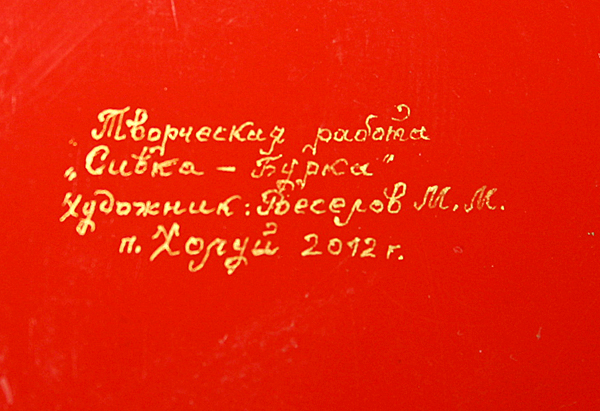 Творческая работа
„Сивка – Бурка"
Художник: Веселов М. М.
п. Холуй 2012 г.